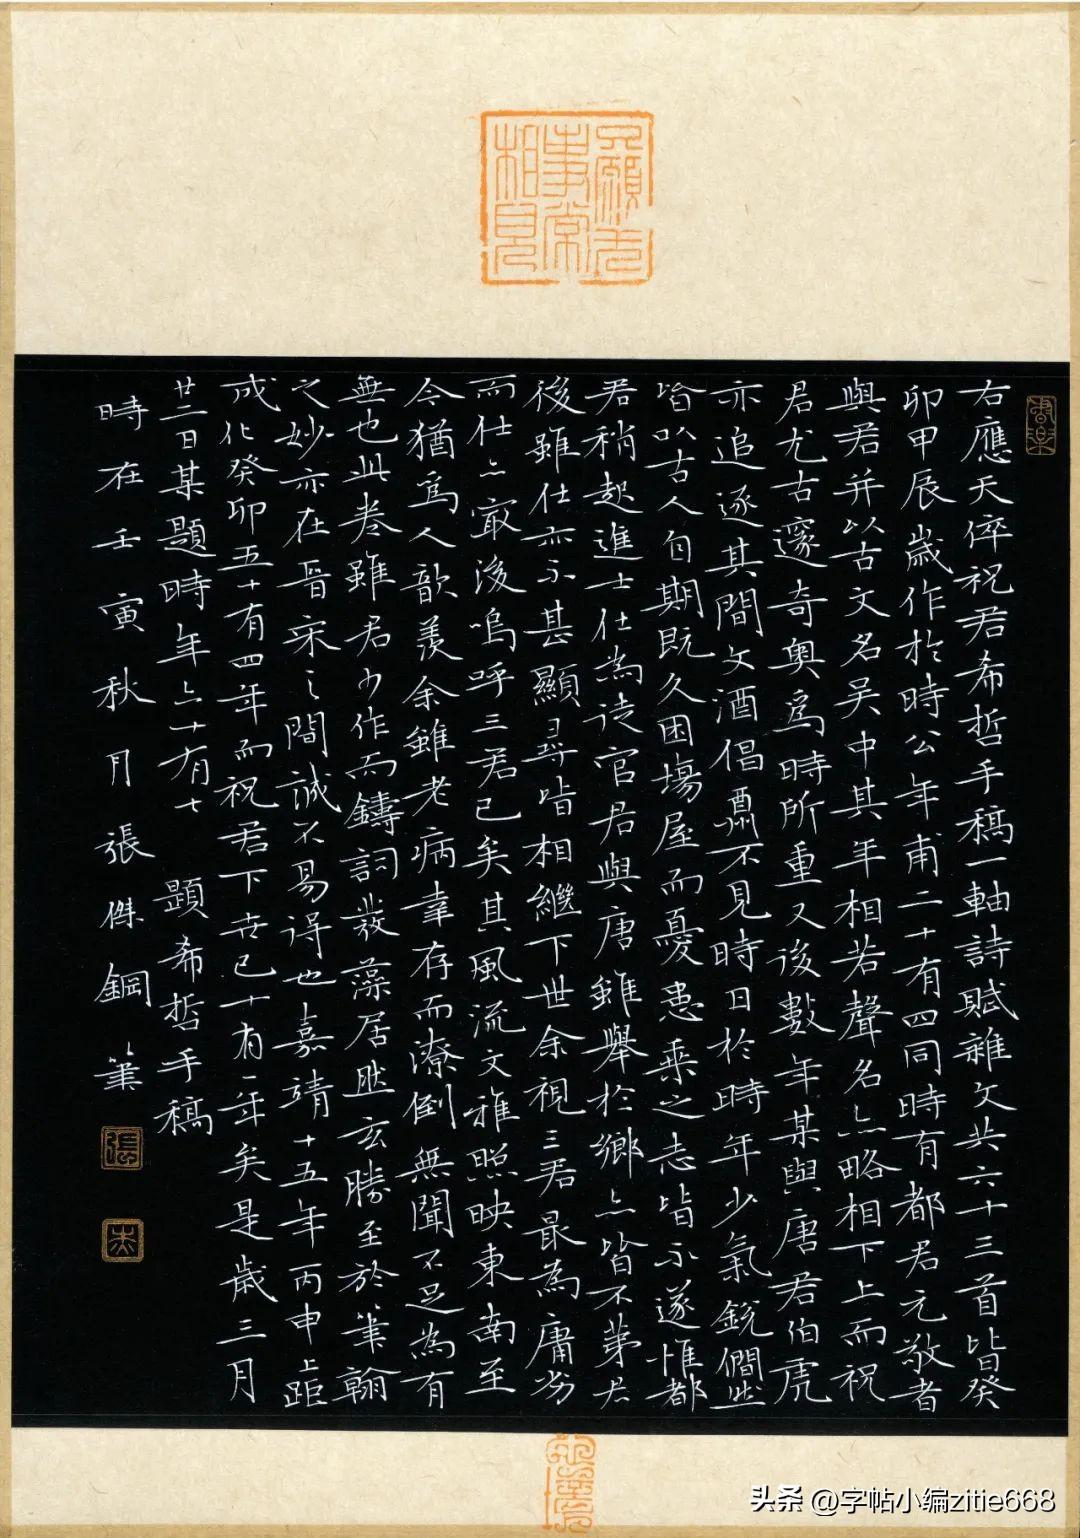 右應天倅祝君希哲手稿一軸詩賦雜文共六十三首皆癸
卯甲辰歲作於時公年甫二十有四同時有都君元敬者
與君并以古文名吴中其年相若聲名亦略相下上而祝
君尤古邃奇奧爲時所重又後數年某與唐君伯虎
亦追逐其間文酒倡酬不見時日於時年少氣銳僩然
皆以古人自期既久困塲屋而憂患乘之志皆不遂惟都
君稍起進士仕為徒官君與唐雖舉於鄉亦皆不第君
後雖仕亦不甚顯尋皆相繼下世余視三君最為庸劣
而仕亦最後嗚呼三君已矣其風流文雅照映東南至
今猶爲人歆羨余雖老病幸存而潦倒無聞不足為有
無也此卷雖君少作而鑄詞發藻居然玄勝至於筆翰
之妙亦在晉宋之間誠不易得也嘉靖十五年丙申上距
成化癸卯五十有四年而祝君下世已十有一年矣是歲三月
廿二日某題時年六十有七 題希哲手稿
時在壬寅秋月張傑鋼筆
張
杰
头条 @字帖小编zitie668